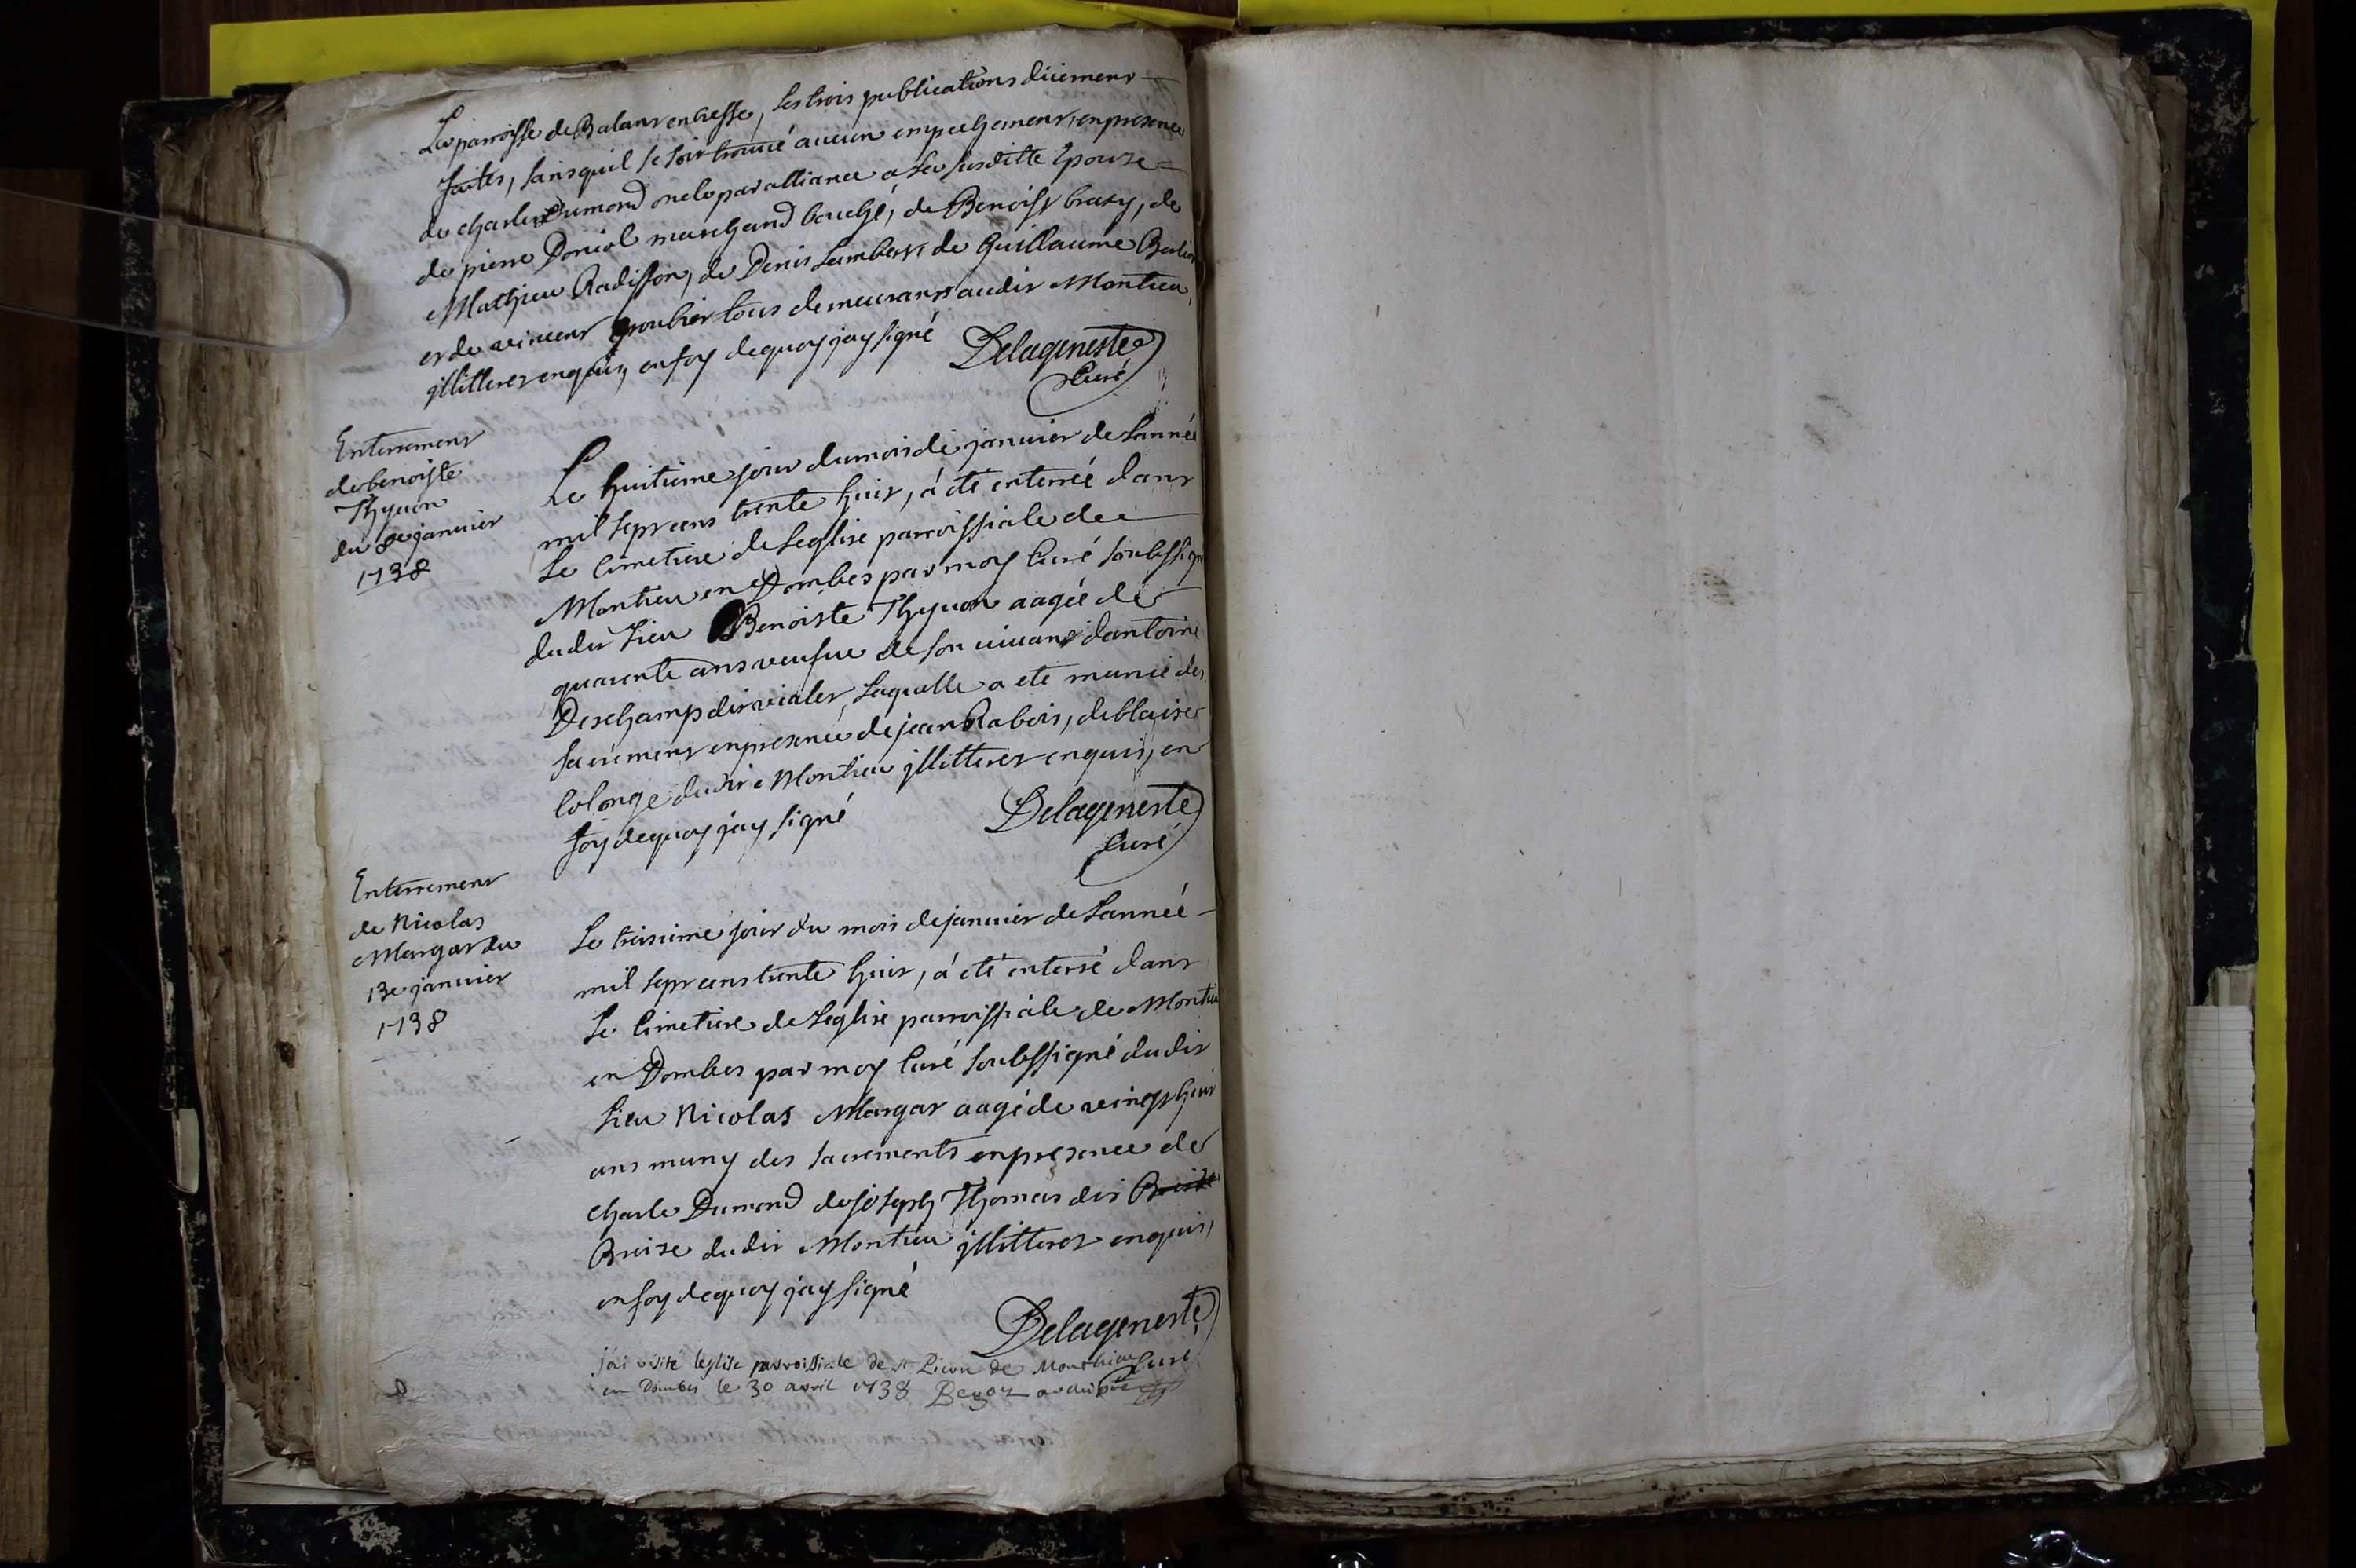 La parroisse de Balant en bresse, les trois publications düement
faites, sans quil se soit trouué aucun empechement, en presence
de charles Dumond oncle par alliance a la susditte épouze
de pierre Doriol marchand bouché, de Benoist brazy, de
Mathieu Radisson, de Denis Lambert, de Guillaume Berlie
et de vincent groubier tous demeurants audit Montieu,
jllitteres enquis, en foy de quoy jay signé Delageneste
Curé
Enterrement
de benoiste
Thyuon
du 8e januier
1738
Le huitieme jour du mois de januier de Lannée
mil sept cent trente huit, á été enterreé dans
Le Cimetiere de Leglise parroissiale de
Montieu en Dombes par moy Curé soubssigné
dudit Lieu Benoiste Thyuon aagée de
quarente ans veufue de son uiuant dantoine
Deschamp dit vialet, Laquelle a eté munie des
sacrements en presence de jean Rabois, de blaise
Colonge dudit Montieu jllitteres enquis, en
foy de quoy jay signé Delageneste
Curé
Enterrement
de Nicolas
Margat du
13e januier
1738
Le treisieme jour du mois de januier de Lanneé
mil sept cens trente huit, á été enterré dans
Le Cimetiere de Leglise parroissiale de Montieu
en Dombes par moy Curé soubssigné dudit
Lieu Nicolas Margat aagé de veingt huit
ans muny des sacrements en presence de
charle Dumond de joseph Thomas dit
Breize dudit Montieu jllitteres enquis,
en foy de quoy jay signé
Delageneste
Curé
j'ai visité leglise parroissiale de st Pierre de Monthieu
en Dombes le 30 avril 1738